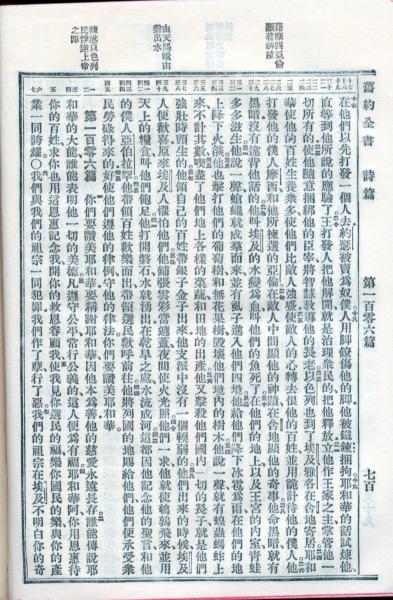 舊約全書 詩篇 第一百零六篇 七百
顯著神蹟
由天賜糧由
磐出水
以色列
之罪
在他們以先打發一個人去約瑟被賣爲奴僕人用脚鐐傷他的脚他被鐵鏈捆拘耶和華的話試煉他
直等到他所說的應驗了王打發人把他解開就是治理衆民的把他釋放立他作王家之主掌管他一
切所有的使他隨意捆綁他的臣宰將智慧教導他的長老以色列也到了埃及雅各在含地寄居耶和
華使他的百姓生養衆多使他們比敵人强盛使敵人的心轉去恨他的百姓並用詭計待他的僕人他
打發他的僕人摩西和他所揀選的亞倫在敵人中間顯他的神蹟在含地顯他的奇事他命黑暗就有
黑暗沒有違背他話的他叫埃及的水變爲血叫他們的魚死了在他們的地上以及王宮的內室靑蛙
多多滋生他說一聲蒼蠅就成羣而來並有虱子進入他們四境他給他們降下冰雹爲雨在他們的地
上降下火燄他也擊打他們的葡萄樹和無花果樹毀壞他們境內的樹木他說一聲就有蝗蟲螞蚱上
來不計其數喫盡了他們地上各樣的菜蔬和田地的出產他又擊殺他們國內一切的長子就是他們
强壯時頭生的他領自己的百姓帶銀子金子出來他支派中沒有一個輭弱的他們出來的時候埃及
人便歡喜原來埃及人懼怕他們他鋪張雲彩當遮蓋夜間使火光照他們一求他就使鵪鶉飛來並用
天上的糧食叫他們飽足他打開磐石水就湧出在乾旱之處水流成河這都因他記念他的聖言和他
的僕人亞伯拉罕他帶領百姓歡樂而出帶領選民歡呼前往他將列國的地賜給他們他們便承受衆
民勞碌得來的好使他們遵他的律例守他的律法你們要讚美耶和華
第一百零六篇 你們要讚美耶和華要稱謝耶和華因他本爲善他的慈愛永遠長存誰能傳說耶
和華的大能誰能表明他一切的美德凡遵守公平常行公義的這人便爲有福耶和華阿你用恩惠待
你的百姓求你也用這恩惠記念我開你的救恩眷顧我使我見你選民的福樂你國民的樂與你的產
業一同誇耀我們與我們的祖宗一同犯罪我們作了孽行了惡我們的祖宗在埃及不明白你的奇